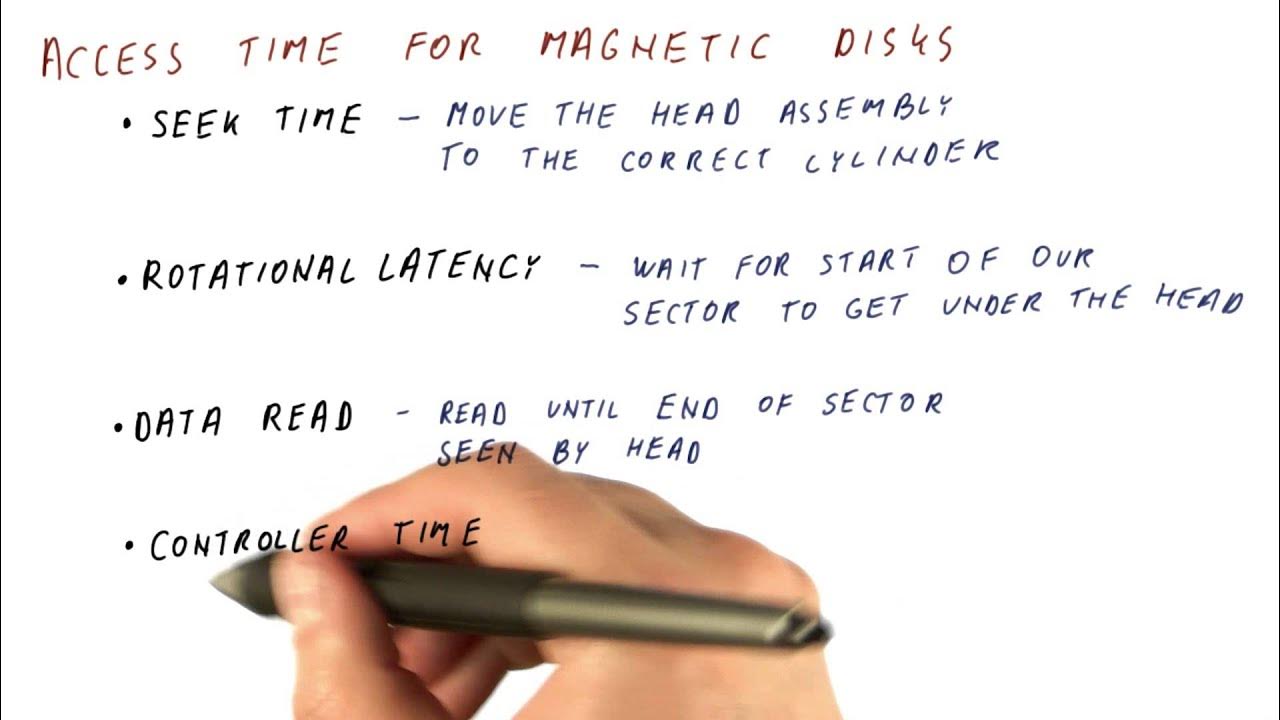 ACCESS TIME FOR MAGNETIC DISKS
• SEEK TIME – MOVE THE HEAD ASSEMBLY
TO THE CORRECT CYLINDER
• ROTATIONAL LATENCY – WAIT FOR START OF OUR
SECTOR TO GET UNDER THE HEAD
• DATA READ - READ UNTIL END OF SECTOR
SEEN BY HEAD
• CONTROLLER TIME